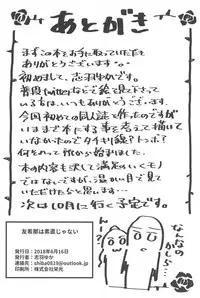 あとがき
まずこの本をお手に取っていただき
ありがとうございます。
初めまして、志羽ゆかです。
普段twitterなどで絵を見て下さって
いる方は、いつもありがとうございます。
今回初めての同人誌を作ったのですが
いままで本にする事を考えて描いて
いなかったのでウチキリ線?トンボ?
何をわって所から始まりました…
本の内容も拙くて満足のいくモノ
ではないのですが、温かい目で見て
いただけたらと思います…
次は10月に行く予定です。
友希那は素直じゃない
発行日：2018年6月16日
発行者：志羽ゆか
連絡先：shiba0829@outlook.jp
印刷所：株式会社栄光
なんなの
かしら…